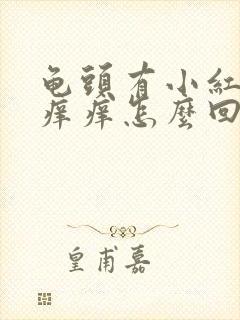 龟頭有小紅
痒痒怎麽回
皇甫嘉